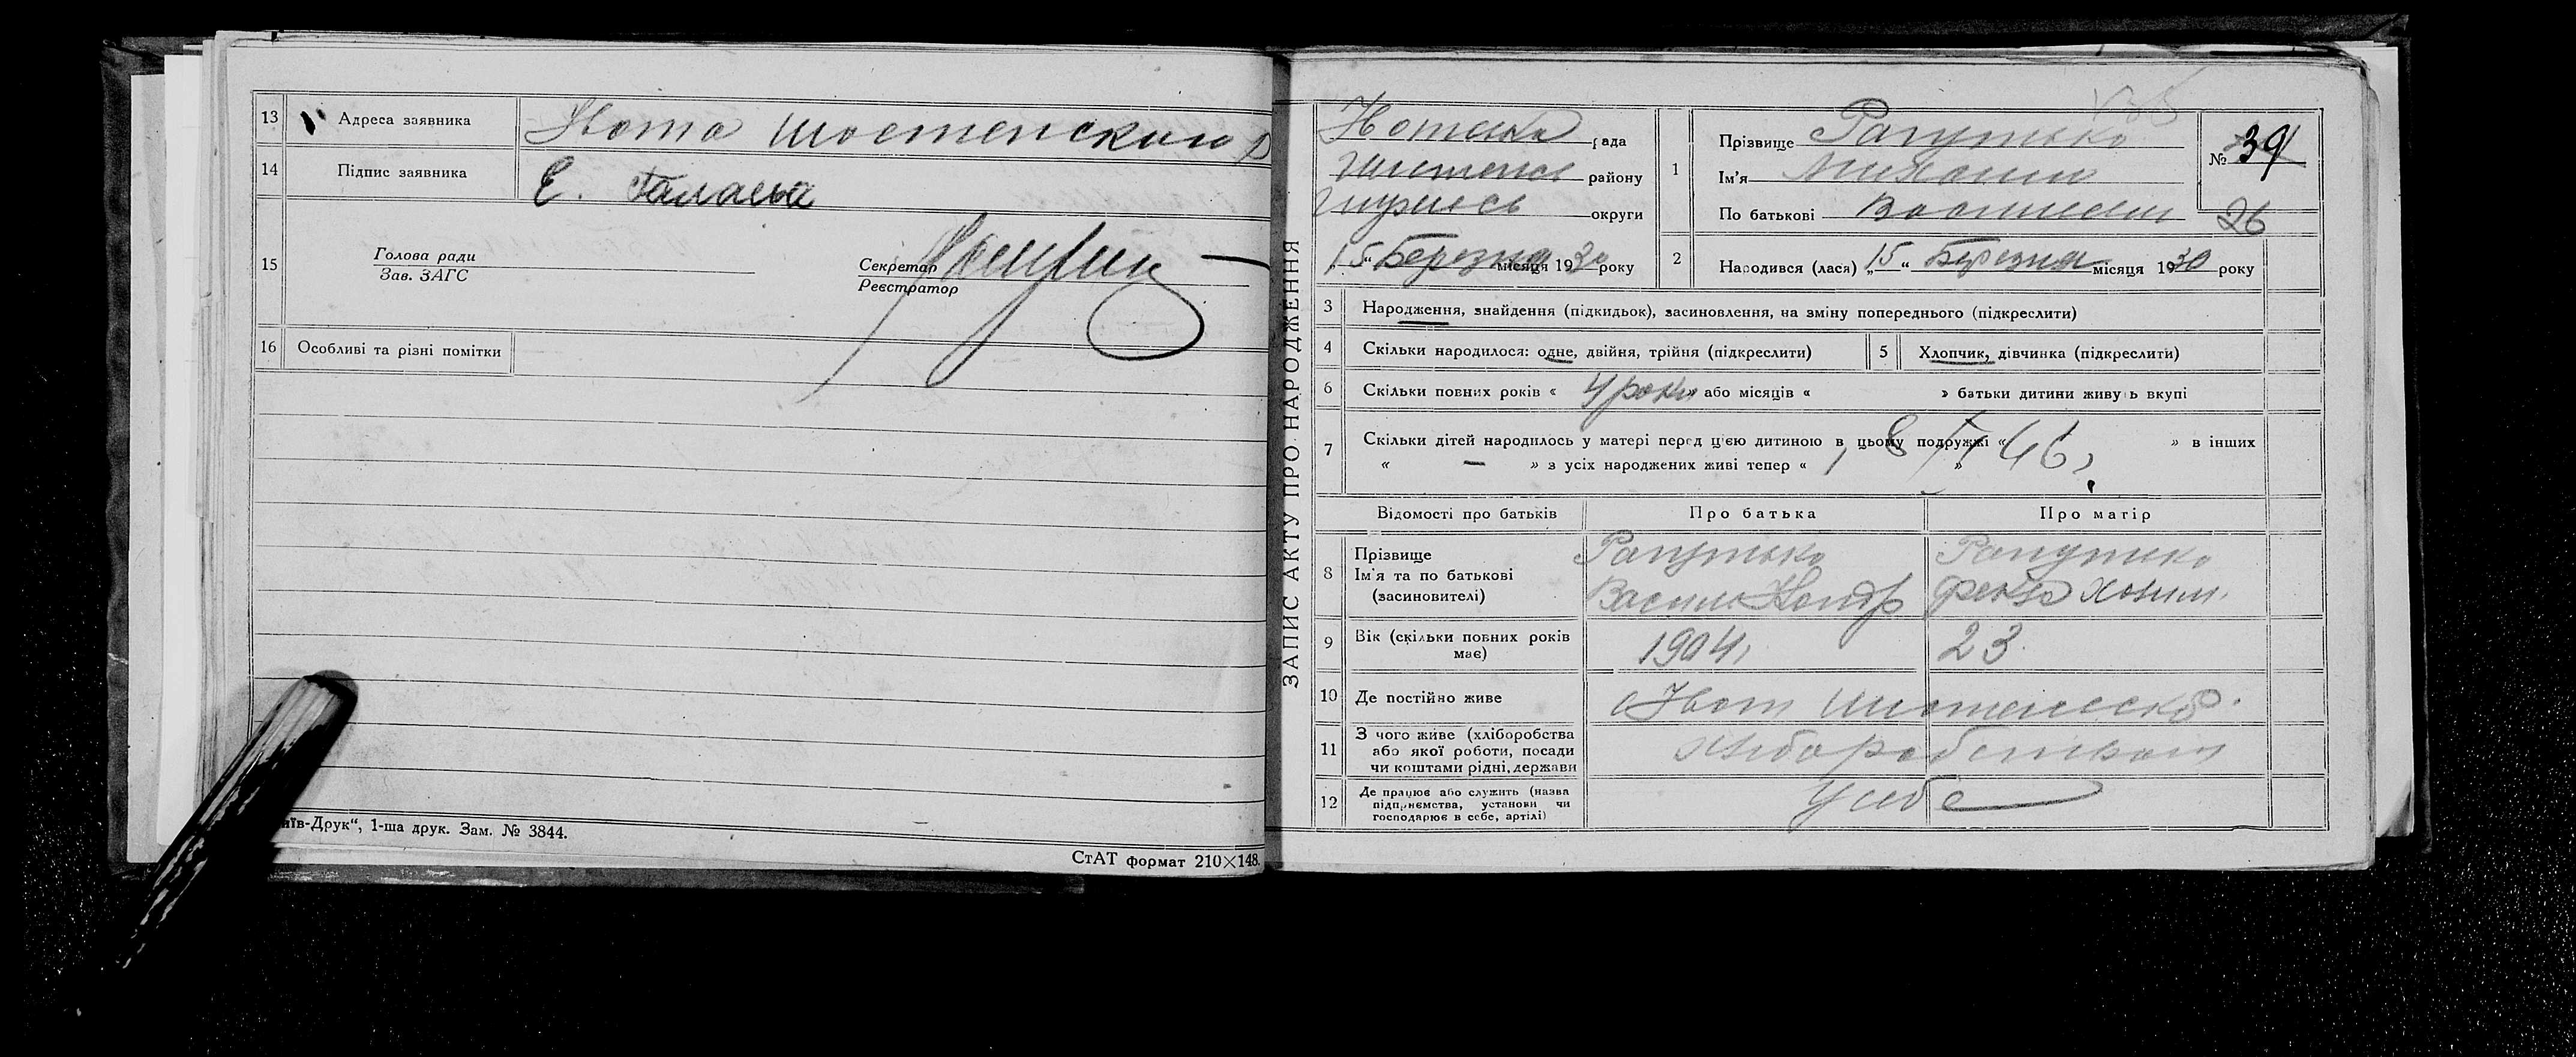 13 Адреса заявника Ивота Шостенского р
14 Підпис заявника Є. Галаева
15 Голова ради
Зав. ЗАГС
Секретар
Реєстратор
16 Особливі та різні помітки
їв-Друк“, 1-ша друк. Зам. № 3844.
СтАТ формат 210×148.
ЗАПИС АКТУ ПРО НАРОДЖЕННЯ
рада
району
округи
„15“ Березня місяця 1930 року
1 Прізвище Рапутько
Ім'я Михаил
По батькові
№ 39
26
2 Народився (лася) „15“ Березня місяця 1930 року
3 Народження, знайдення (підкидьок), засиновлення, на зміну попереднього (підкреслити)
4 Скільки народилося: одне, двійня, трійня (підкреслити)
5 Хлопчик, дівчинка (підкреслити)
6 Скільки повних років « 4 роки » або місяців « » батьки дитини живуть вкупі
7 Скільки дітей народилось у матері перед цією дитиною в цьому подружжі « » в інших
« — » з усіх народжених живі тепер « »
Відомості про батьків Про батька Про матір
8 Прізвище
Ім'я та по батькові
(засиновителі)
Рапутько
Васил Кондр
Рапутько
Фекла
9 Вік (скільки повних років
має)
1904
23
10 Де постійно живе Ивот Шостенско
11 З чого живе (хліборобства
або якої роботи, посади
чи коштами рідні, держави
Хліборобством
12 Де працює або служить (назва
підприємства, установи чи
господарює в себе, артілі)
У себе